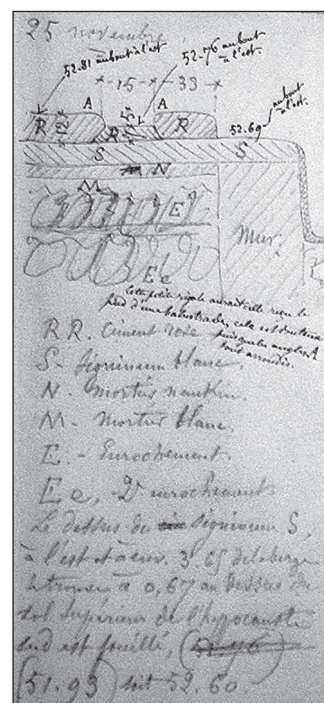 25 novembre
52.81 au bout à l'est.
52.76 au bout à l'est.
15 33
A A
R R R
52.69 au bout à l'est.
S S
N
M
E
Mur.
E e
Cette petite rigole aurait-elle reçu le
pied d'une balustrade, cela est douteux
puisque les angles A
sont arrondis.
R R. Ciment rose
S - Signinum blanc.
N - mortier nankin.
M - mortier blanc.
E - Enrochement.
E e, De enrochement
Le dessus du Signinum S,
à l'est à env. 3.65 de la berge
se trouve à 0,67 au dessus du
sol supérieur de l'hypocauste
sud est fouillé,
(51.93) soit 52.60.